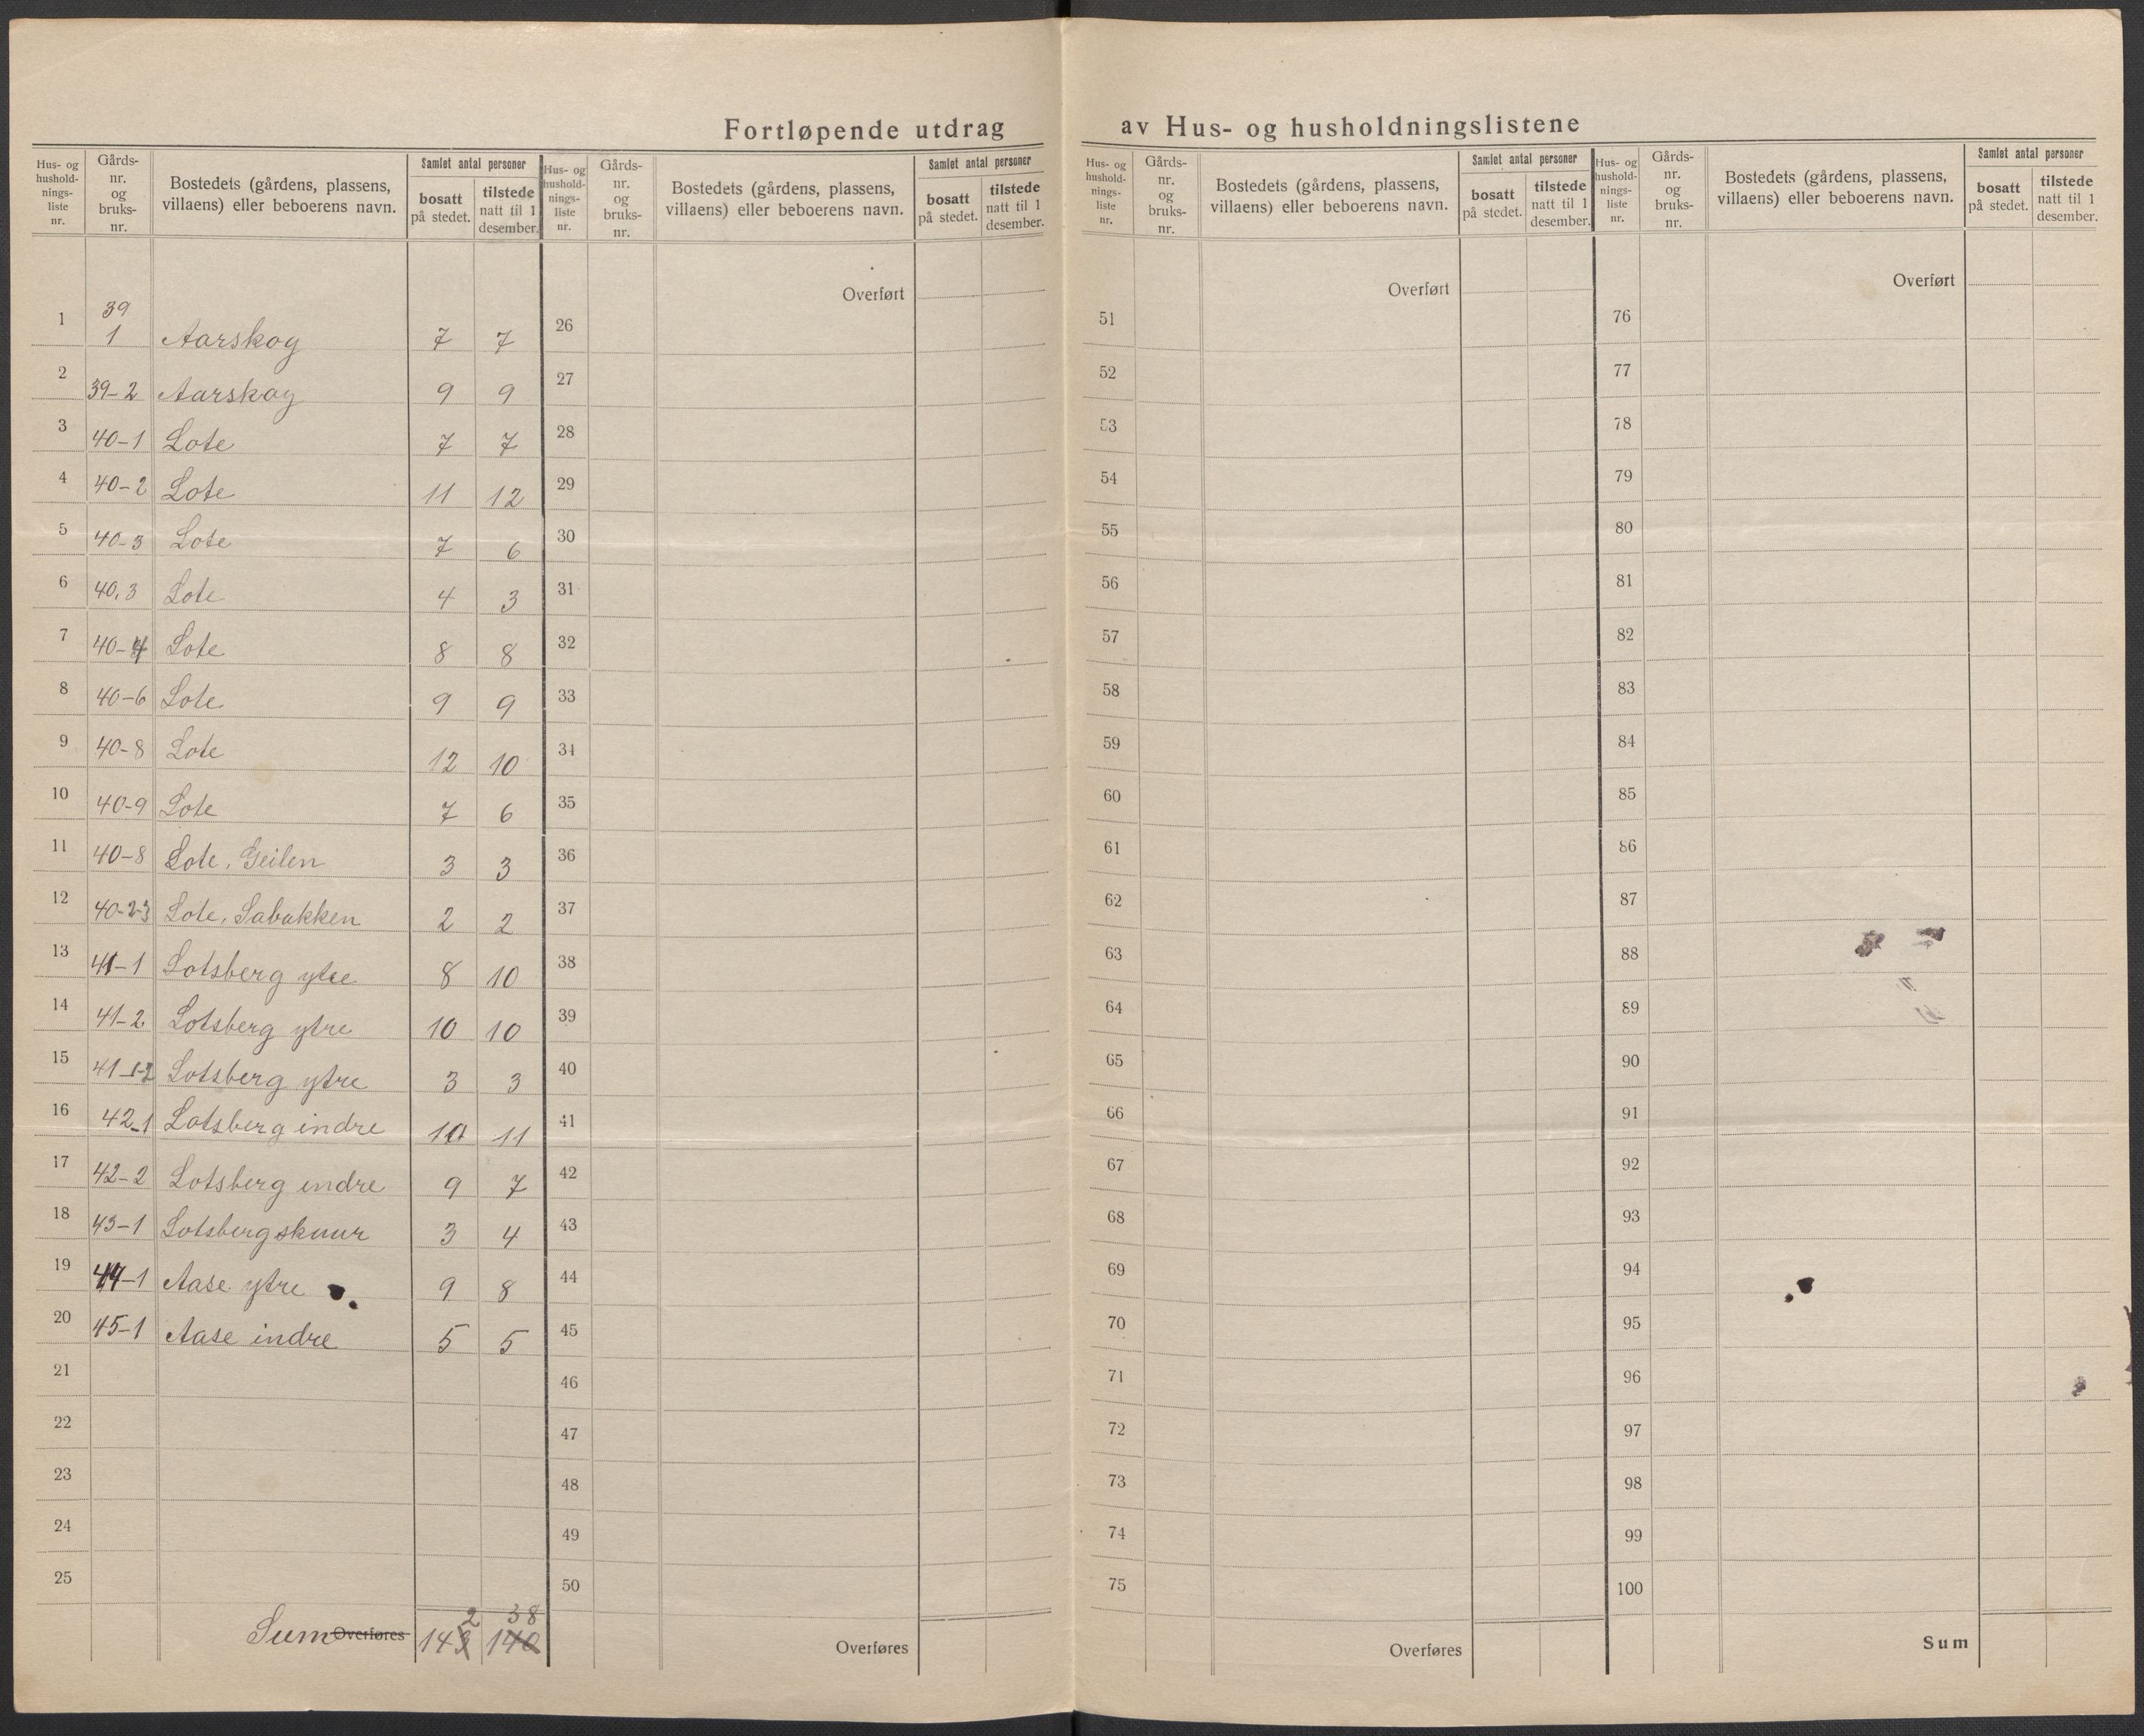 Fortløpende utdrag av Hus- og husholdningslistene
Hus- og husholdnings-liste nr. | Gårds-nr. og bruks-nr. | Bostedets (gårdens, plassens, villaens) eller beboerens navn. | Samlet antal personer | bosatt på stedet. | tilstede natt til 1 desember.
1 39 1 Aarskog 7 7
2 39-2 Aarskog 9 9
3 40-1 Lote 7 7
4 40-2 Lote 11 12
5 40-3 Lote 7 6
6 40.3 Lote 4 3
7 40-4 Lote 8 8
8 40-6 Lote 9 9
9 40-8 Lote 12 10
10 40-9 Lote 7 6
11 40-8 Lote, Geilen 3 3
12 40-2-3 Lote, Sabakken 2 2
13 41-1 Lotsberg ytre 8 10
14 41-2 Lotsberg ytre 10 10
15 41-1-2 Lotsberg ytre 3 3
16 42-1 Lotsberg indre 10 11
17 42-2 Lotsberg indre 9 7
18 43-1 Lotsbergskuur 3 4
19 44-1 Aase ytre 9 8
20 45-1 Aase indre 5 5
21
22
23
24
25
2 38
Sum Overføres 143 140
Hus- og husholdnings-liste nr. | Gårds-nr. og bruks-nr. | Bostedets (gårdens, plassens, villaens) eller beboerens navn. | Samlet antal personer | bosatt på stedet. | tilstede natt til 1 desember.
Overført
26
27
28
29
30
31
32
33
34
35
36
37
38
39
40
41
42
43
44
45
46
47
48
49
50
Overføres
Hus- og husholdnings-liste nr. | Gårds-nr. og bruks-nr. | Bostedets (gårdens, plassens, villaens) eller beboerens navn. | Samlet antal personer | bosatt på stedet. | tilstede natt til 1 desember.
Overført
51
52
53
54
55
56
57
58
59
60
61
62
63
64
65
66
67
68
69
70
71
72
73
74
75
Overføres
Hus- og husholdnings-liste nr. | Gårds-nr. og bruks-nr. | Bostedets (gårdens, plassens, villaens) eller beboerens navn. | Samlet antal personer | bosatt på stedet. | tilstede natt til 1 desember.
Overført
76
77
78
79
80
81
82
83
84
85
86
87
88
89
90
91
92
93
94
95
96
97
98
99
100
Sum